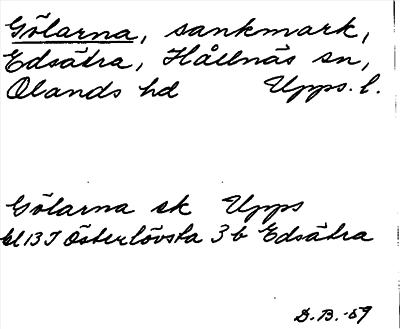 Gölarna, sankmark,
Edsätra, Hållnäs sn,
Olands hd Upps. l.
Gölarna ek Upps
bl 13 I Österlövsta 3b Edsätra
D.B. -59